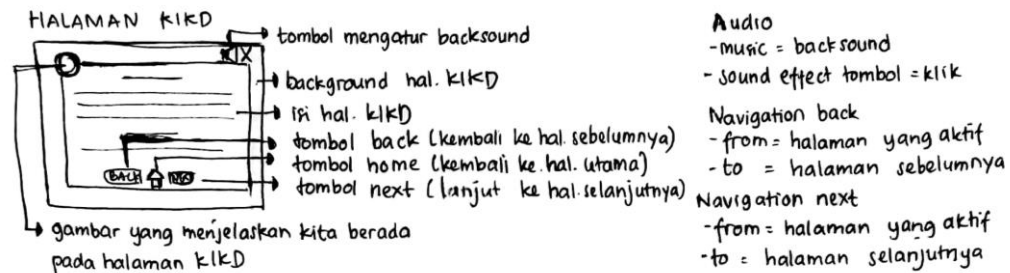 HALAMAN KIKD
tombol mengatur backsound
background hal. KIKD
isi hal. KIKD
tombol back (kembali ke hal. sebelumnya)
tombol home (kembali ke. hal. utama)
tombol next (lanjut ke hal. selanjutnya)
BACK
gambar yang menjelaskan kita berada
pada halaman KIKD
Audio
- music = backsound
- sound effect tombol = klik
Navigation back
- from = halaman yang aktif
- to = halaman sebelumnya
Navigation next
- from = halaman yang aktif
- to = halaman selanjutnya